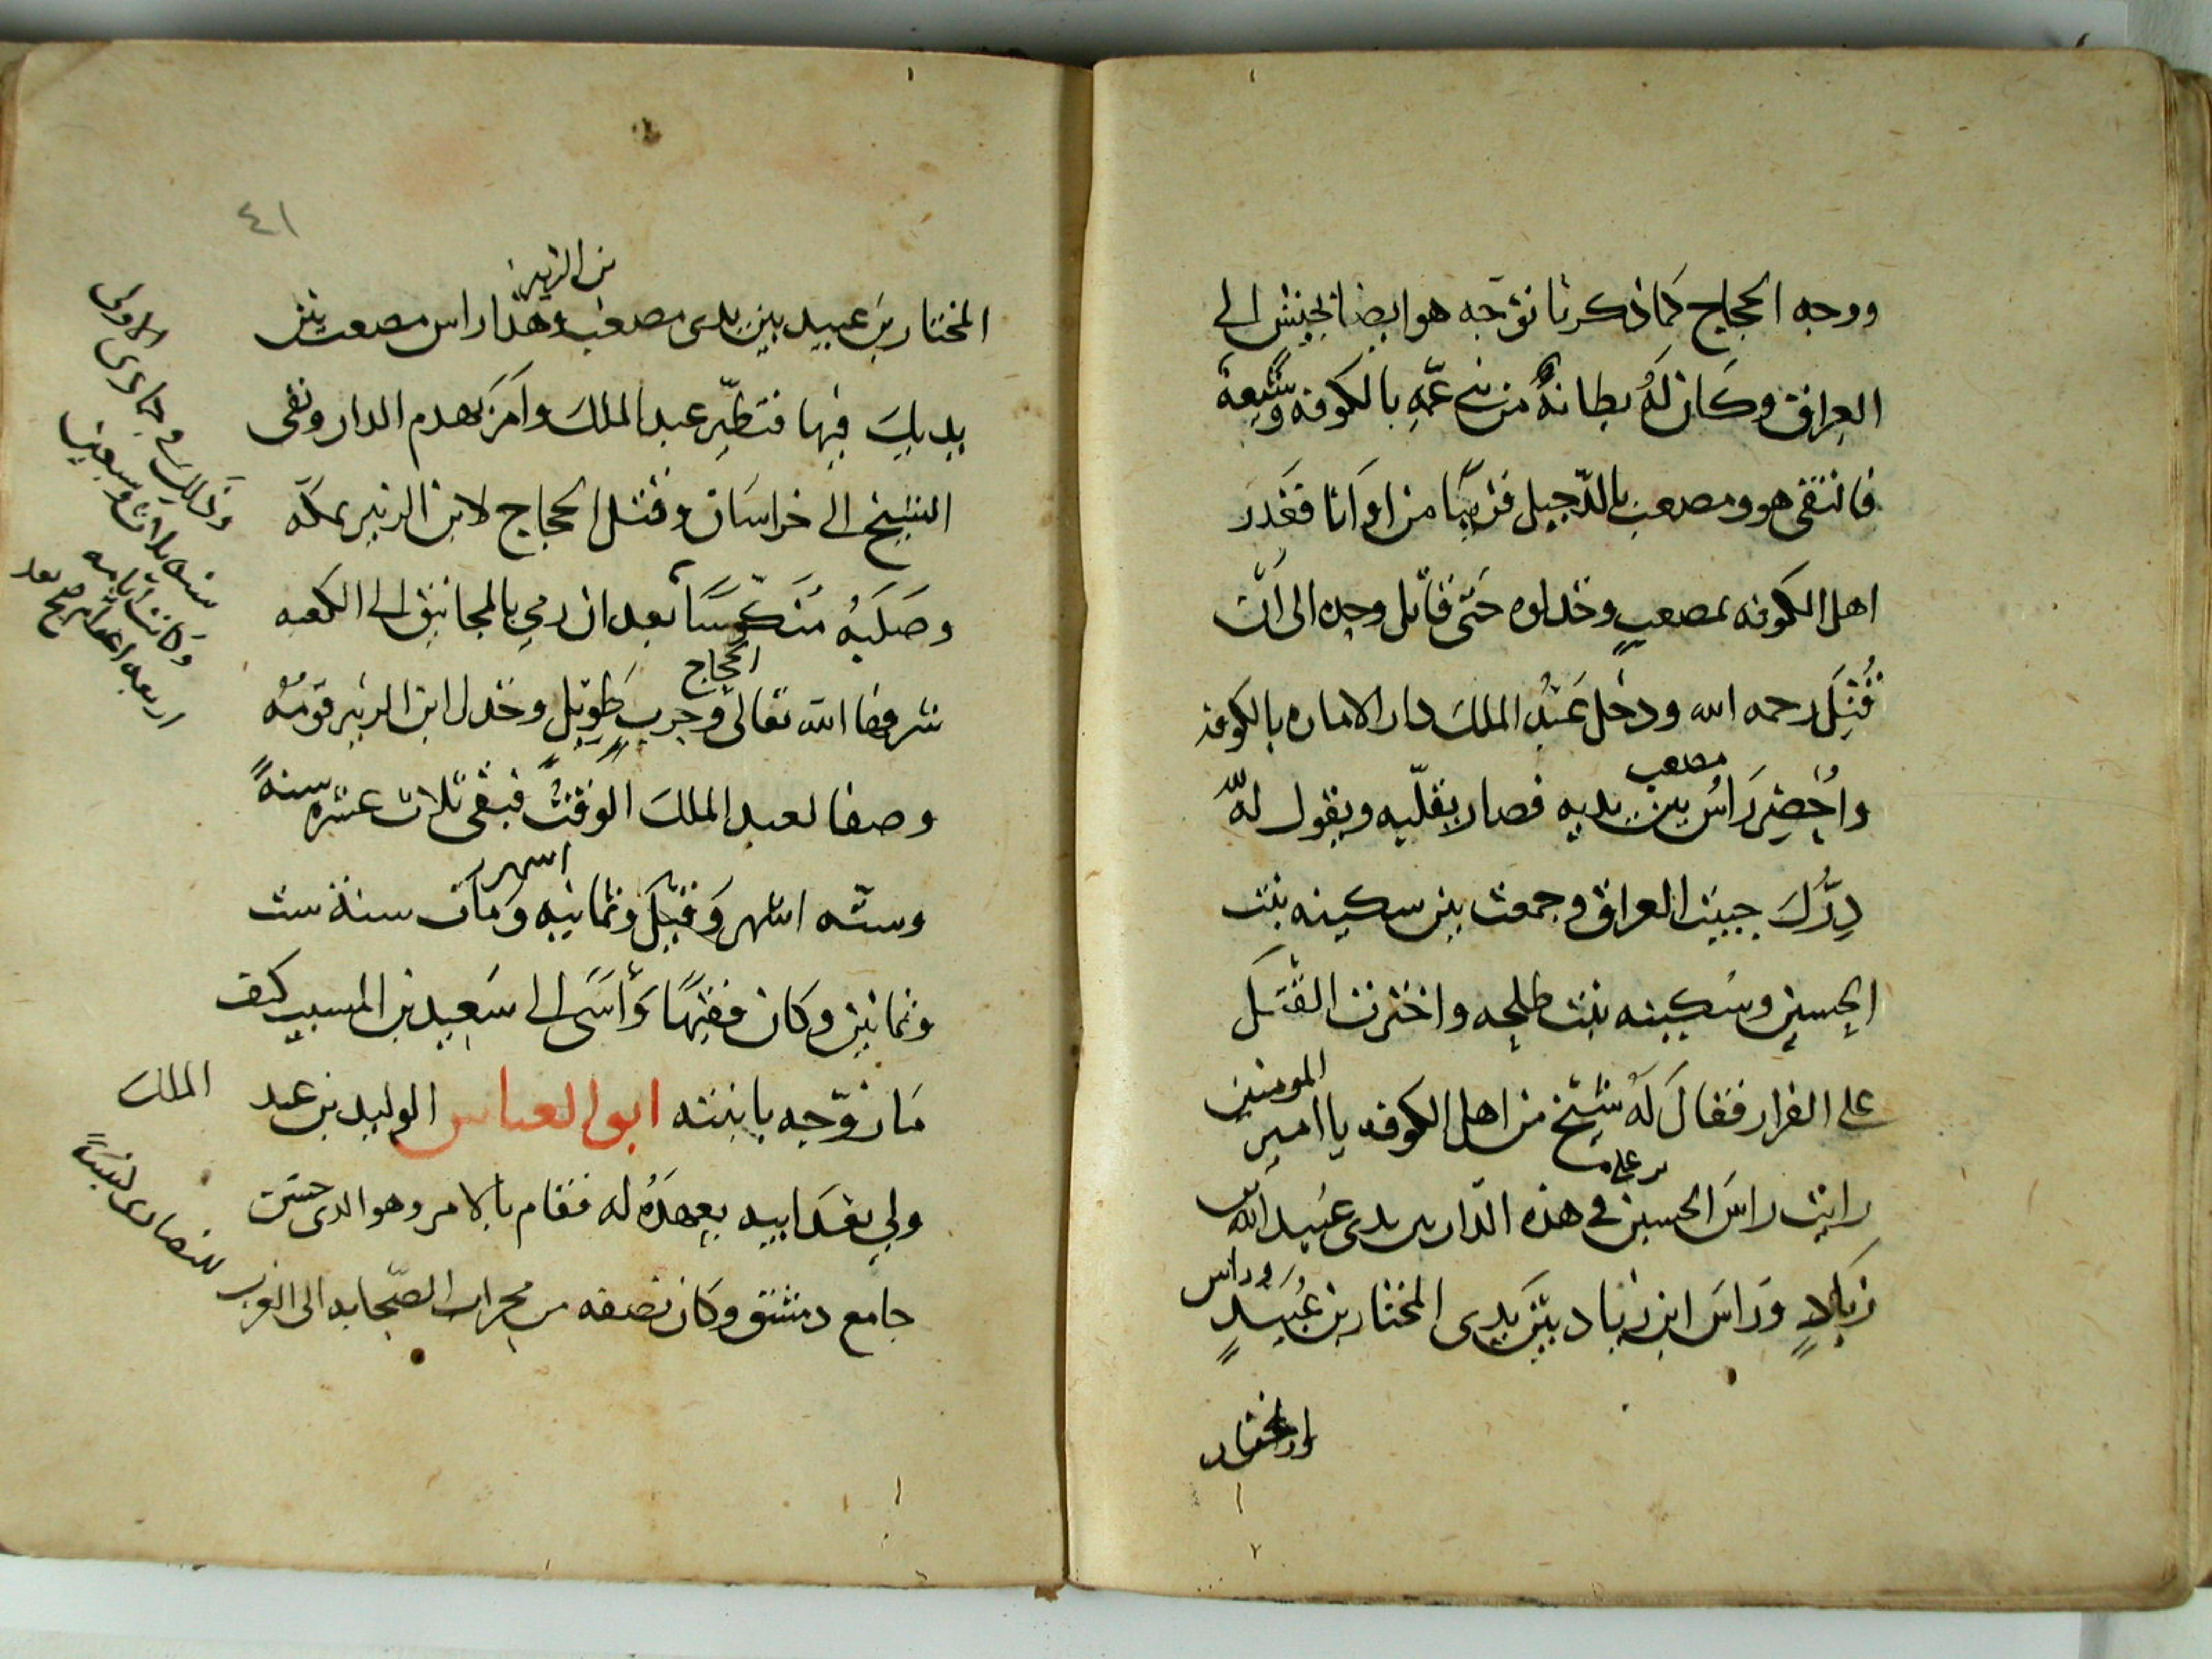 ووجه الحجاج كما ذكرنا توجه هو ايضا بجيش الى
العراق وكان له بطانة من بني عمه بالكوفه وشيعة
فالتقى هو ومصعب بالدجيل قريبا من اوانا فغدر
اهل الكوفه بمصعب وخذلوه حتى قاتل وحده الى ان
قُتِلَ رحمه الله ودخل عبد الملك دار الاماره بالكوفه
واُحضِر رَاسُ مصعب بين يديه فصار يقلبه ويقول لله
درك جبيت العراق وجمعت بين سكينه بنت
الحسين وسكينه بنت طلحه واخترت القتل
على الفرار فقال له شيخ من اهل الكوفه يا امير المومنين
رايت راس الحسين بن على في هذه الدار بين يدى عبيد الله بن
زياد وراس ابن زياد بين يدى المختار بن عبيد وراس
المختار
٤١
المختار بن عبيد بين يدى مصعب بن الزبير وهذا راس مصعب بين
يديك فيها فتطير عبد الملك وامر بهدم الدار ونفى
الشيخ الى خراسان وقتل الحجاج لابن الزبير بمكه
وصلبه منكوسا بعد ان رمي بالمجانيق الى الكعبه
شرفها الله تعالى وحرب الحجاج طويل وخذل ابن الزبير قومه
وصفا لعبد الملك الوقت فبقى ثلاث عشره سنة
وسته اشهر وقيل وثمانيه اشهر ومات سنة ست
وثمانين وكان فقيها واسى الى سعيد بن المسيب كيف
ما زوجه بابنته ابو العباس الوليد بن عبد الملك
ولي بعد ابيه بعهده له فقام بالامر وهو الذى حسن
جامع دمشق وكان نصفه من محراب الصحابه الى الغرب
للنصارى كنيسة
وذلك في جمادى الاولى
سنه ثلاث وسبعين
وكانت ايامه
اربعه اعوام